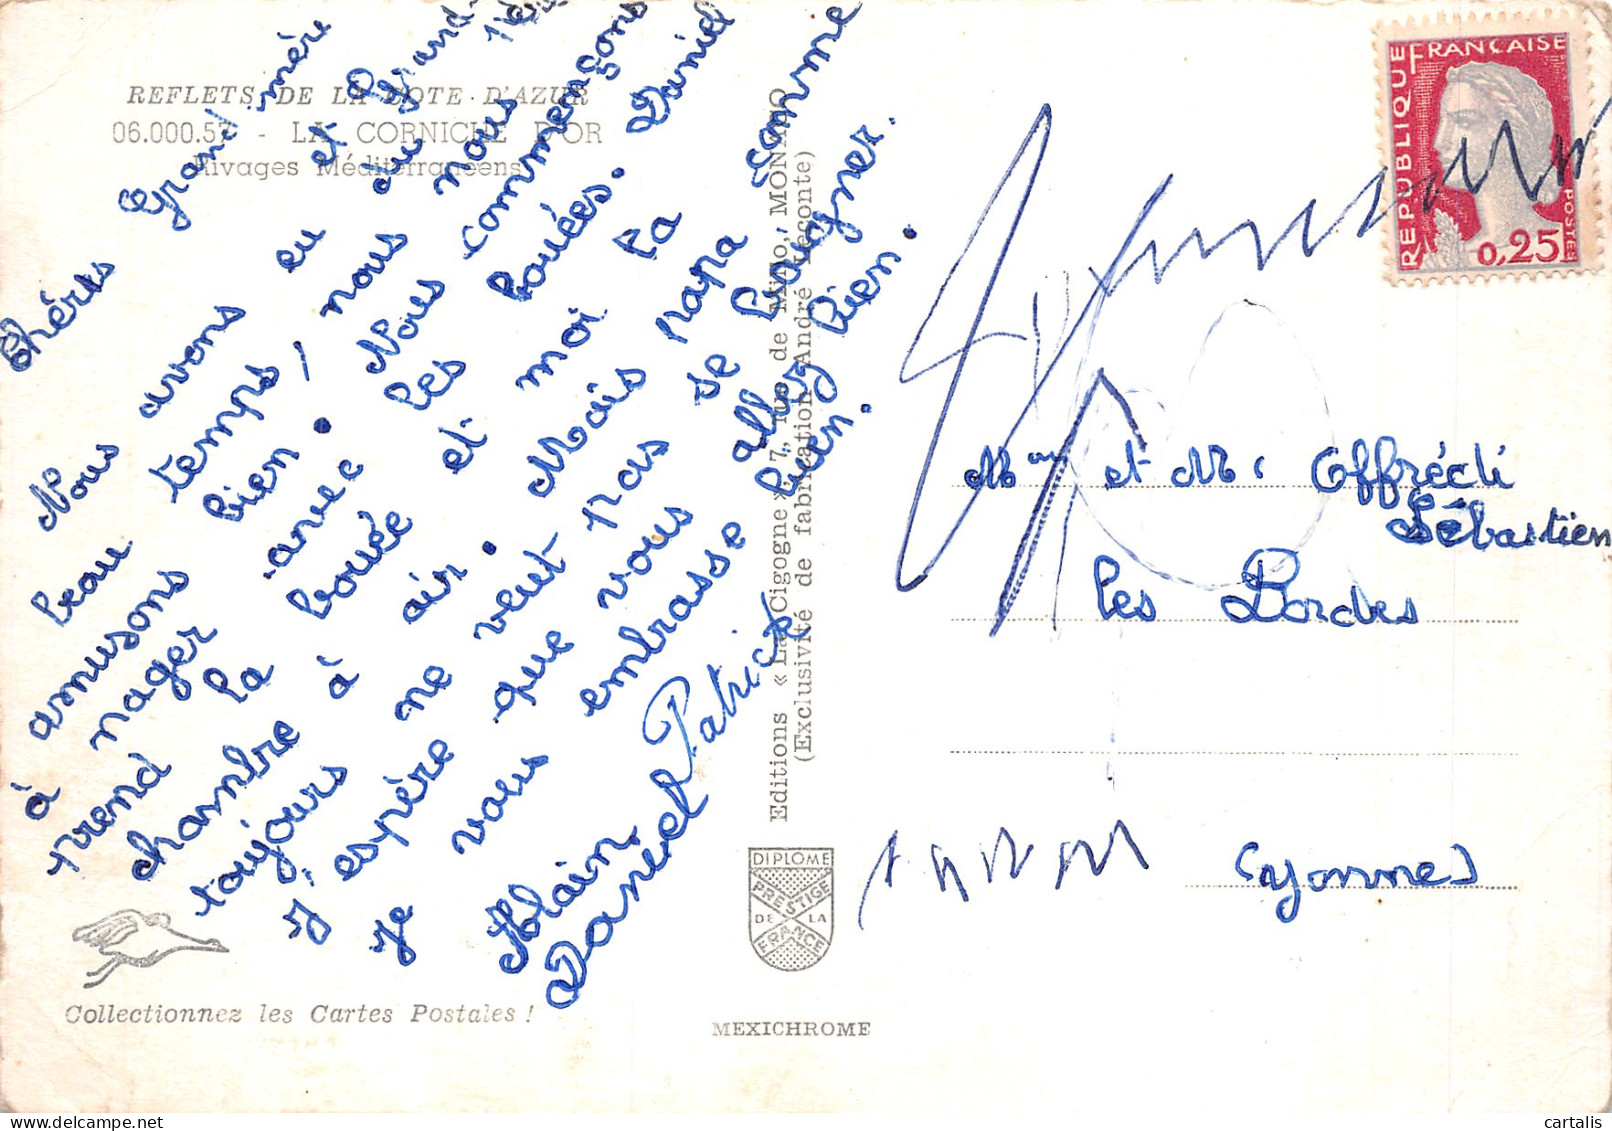 REFLETS DE LA COTE D'AZUR
06.000.57 - LA CORNICHE D'OR
Rivages Méditerranéens
Chérts Grand mère
et Grand-
Nous avons eu du
beau temps, nous nous
amusons bien. Nous commençons
à nager avec les bouées. Daniel
prend la bouée et moi la
chambre à air. Mais papa comme
toujours ne veut pas se baigner.
J'espère que vous allez bien.
Je vous embrasse bien.
Alain,
Daniel Patrick
Collectionnez les Cartes Postales !
Editions « La Cigogne », 7, rue de Millo, MONACO
(Exclusivité de fabrication André Leconte)
DIPLOME
PRESTIGE
DE LA
FRANCE
MEXICHROME
REPUBLIQUE FRANÇAISE
0,25
POSTES
Mme et M. Offrédi
Sébastien
les Bordes
(Yonne)
cartalis